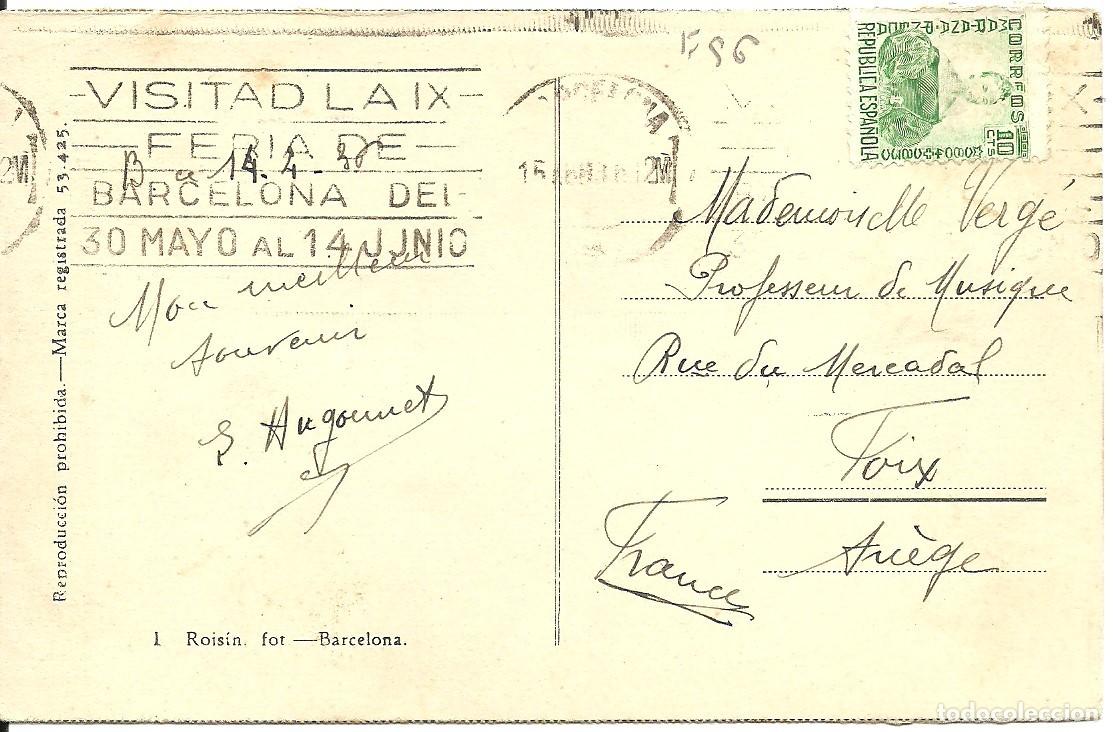 VISITAD LA IX
FERIA DE
BARCELONA DEL
30 MAYO AL 14 JUNIO
B a 14. 4 - 36
Mon meilleur
souvenir
E. Hugonnet
Reproducción prohibida.—Marca registrada 53.425.
1 Roisín. fot —Barcelona.
F S6
CORREOS
10
CTS
REPUBLICA ESPAÑOLA
BARCELONA
15 ABR 36 12
Mademoiselle Vergé
Professeur de Musique
Rue du Mercadal
Foix
Ariège
France
todocoleccion